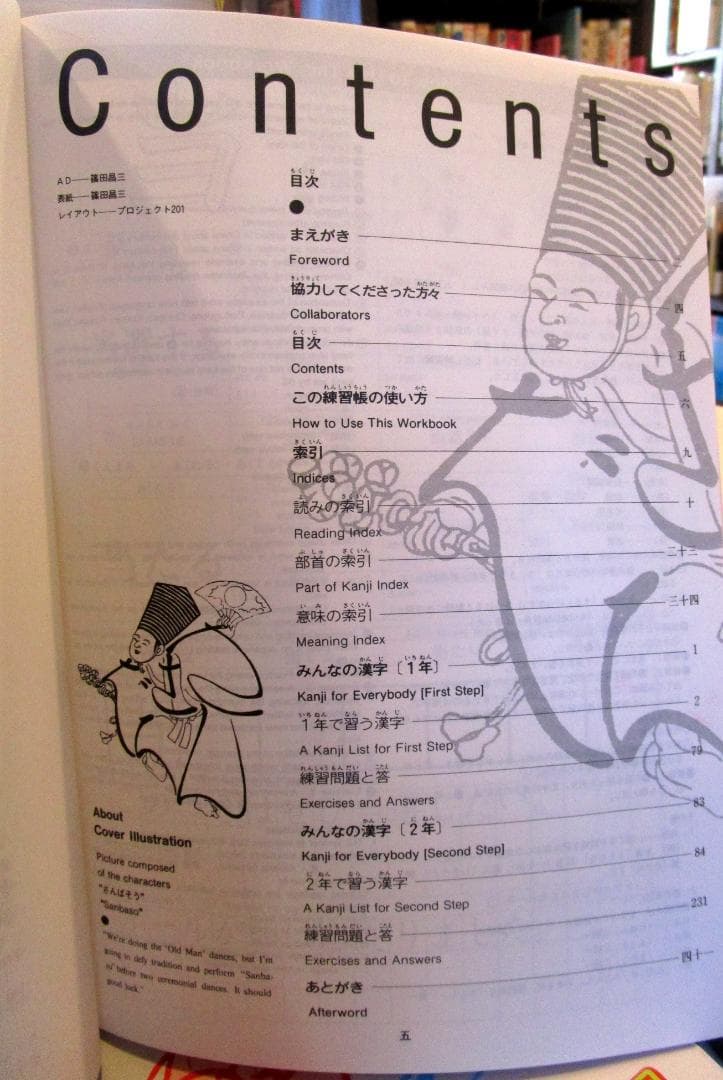 Contents
AD──篠田昌三
表紙──篠田昌三
レイアウト──プロジェクト201
もくじ
目次
●
まえがき
Foreword
きょうりょく かたがた
協力してくださった方々 四
Collaborators
もくじ
目次 五
Contents
れんしゅうちょう つか かた
この練習帳の使い方 六
How to Use This Workbook
さくいん
索引 九
Indices
よ さくいん
読みの索引 十
Reading Index
ぶしゅ さくいん
部首の索引 二十三
Part of Kanji Index
いみ さくいん
意味の索引 三十四
Meaning Index
かんじ いちねん
みんなの漢字〔1年〕 1
Kanji for Everybody [First Step]
いちねん なら かんじ
1年で習う漢字 2
A Kanji List for First Step
れんしゅうもんだい こたえ
練習問題と答 79
Exercises and Answers
かんじ にねん
みんなの漢字〔2年〕 83
Kanji for Everybody [Second Step]
にねん なら かんじ
2年で習う漢字 84
A Kanji List for Second Step
れんしゅうもんだい こたえ
練習問題と答 231
Exercises and Answers
あとがき 四十一
Afterword
About
Cover Illustration
Picture composed
of the characters
"さんばそう"
"Sanbaso"
●
"We're doing the 'Old Man' dances, but I'm
going to defy tradition and perform "Sanba-
so' before two ceremonial dances. It should
good luck."
五